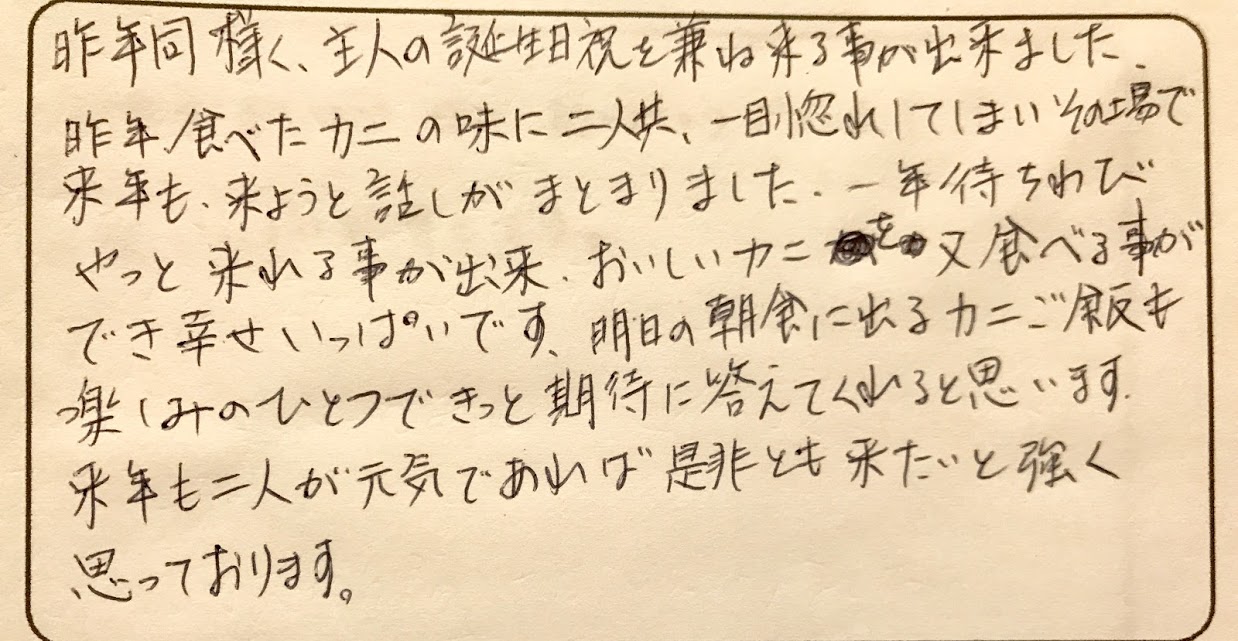 昨年同様く、主人の誕生日祝を兼ね来る事が出来ました、
昨年食べたカニの味に二人共、一目惚れしてしまいその場で
来年も、来ようと話しがまとまりました、一年待ちわび
やっと来れる事が出来、おいしいカニを又食べる事が
でき幸せいっぱいです、明日の朝食に出るカニご飯も
楽しみのひとつできっと期待に答えてくれると思います.
来年も二人が元気であれば是非とも来たいと強く
思っております。